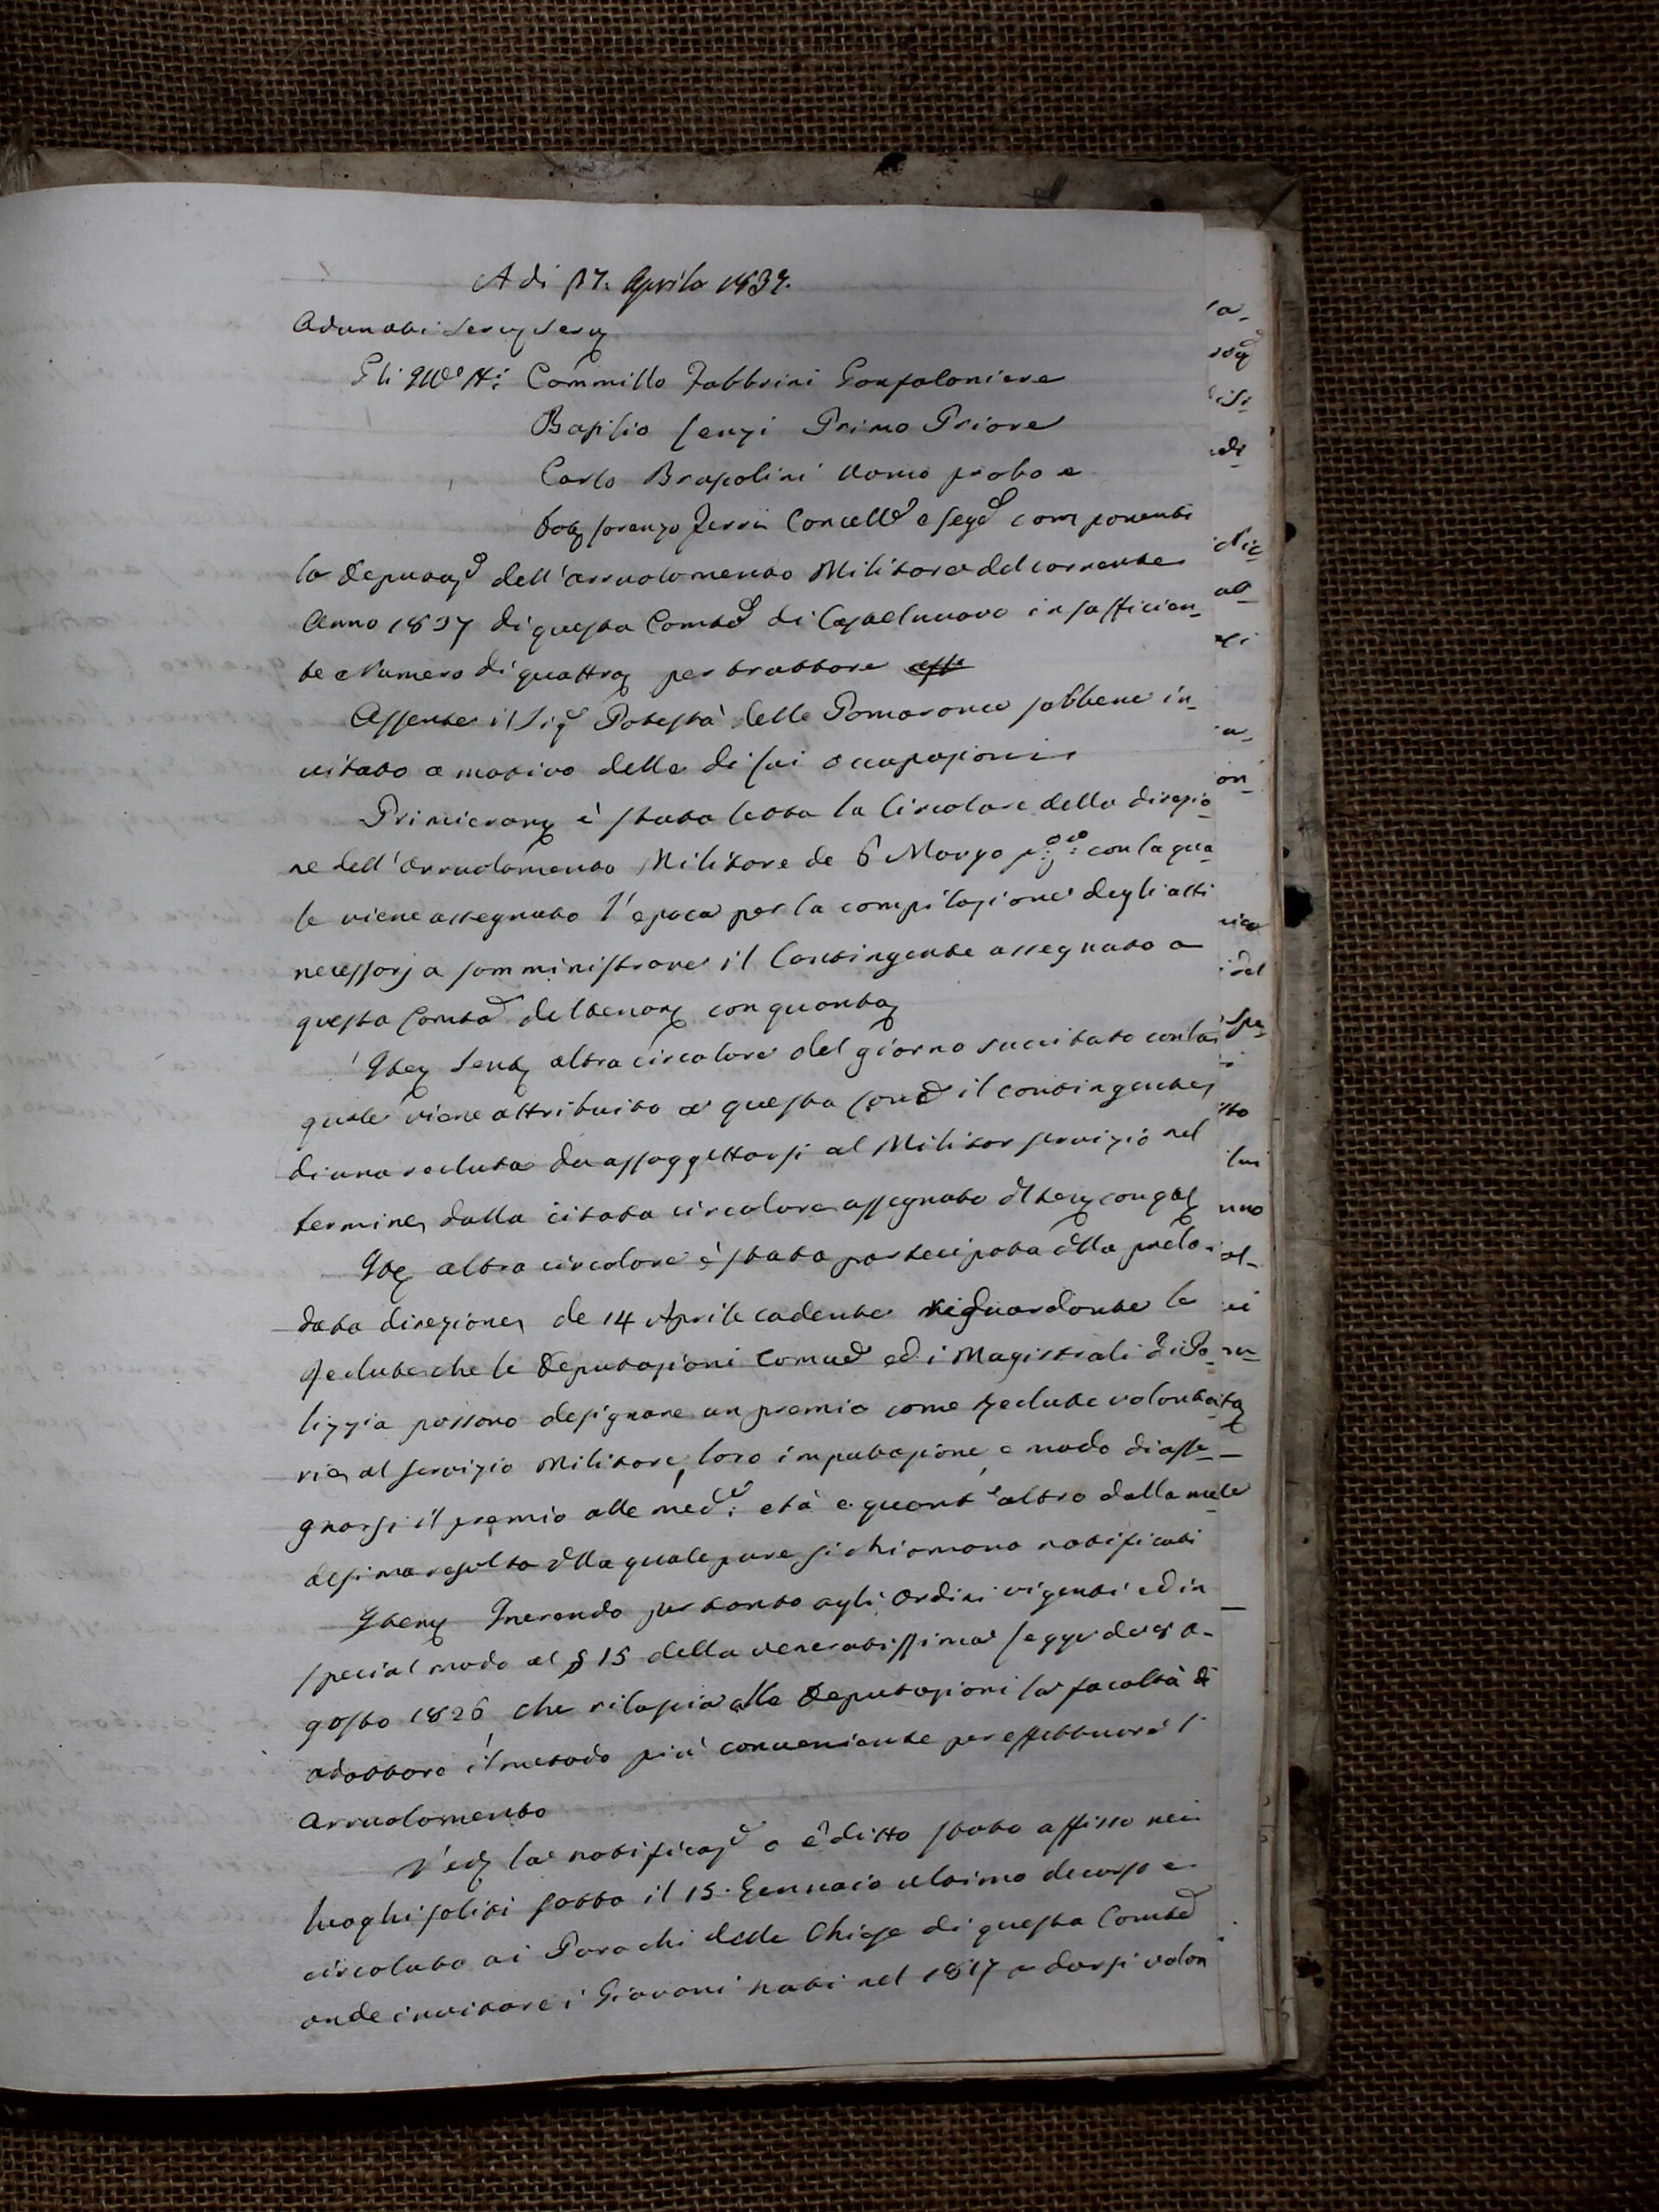 A di 17. Aprile 1837.
Adunati Serv Serv
Gli Ill.mi SS.i Cammillo Fabbrini Gonfaloniere
Basilio Lenzi Primo Priore
Carlo Brasolini Uomo probo e
Lorenzo Cancell.e e Seg.o componenti
la Deputaz.e dell'arruolamento Militare del corrente
Anno 1837 di questa Com.tà di Castelnuovo in sufficien_
te Numero di quattro per trattare
Assente il Sig.e Potestà delle Pomarance sebbene in_
vitato a motivo delle di lui occupazioni
Primieram è stata letta la Circolare della direzio
ne dell'Arruolamento Militare de 6 Marzo p.o p.o con la qua
le viene assegnato l'epoca per la compilazione degli atti
necessarj a somministrare il Contingente assegnato a
questa Com.tà del tenore con quanto
Item Letta altra circolare del giorno succitato con la
quale viene attribuito a questa Com.tà il contingente
di una recluta da assoggettarsi al Militar servizio nel
termine dalla citata circolare assegnato
altra circolare è stata partecipata dalla prelo_
data direzione de 14 Aprile cadente riguardante le
Reclute che le Deputazioni Com.e ed i Magistrati di Po_
lizzia possono designare un premio come Reclute volonta
rie al servizio Militare, loro imputazione, e modo di asse_
gnarsi il premio alle med.e: età e quant'altro dalla mede
desima resulta alla quale pure si chiamano notificati
Inerendo per tanto agli Ordini vigenti ed in
special modo al § 15 della venerabissima Legge de A_
gosto 1826 che rilascia alle Deputazioni la facoltà di
adottare il metodo più conveniente per effettuare l'
Arruolamento
la notificaz.e o editto stato affisso nei
luoghi soliti sotto il 15. Gennaio ultimo decorso e
circolato ai Parochi delle Chiese di questa Com.tà
onde invitare i Giovani nati nel 1817 a darsi volon